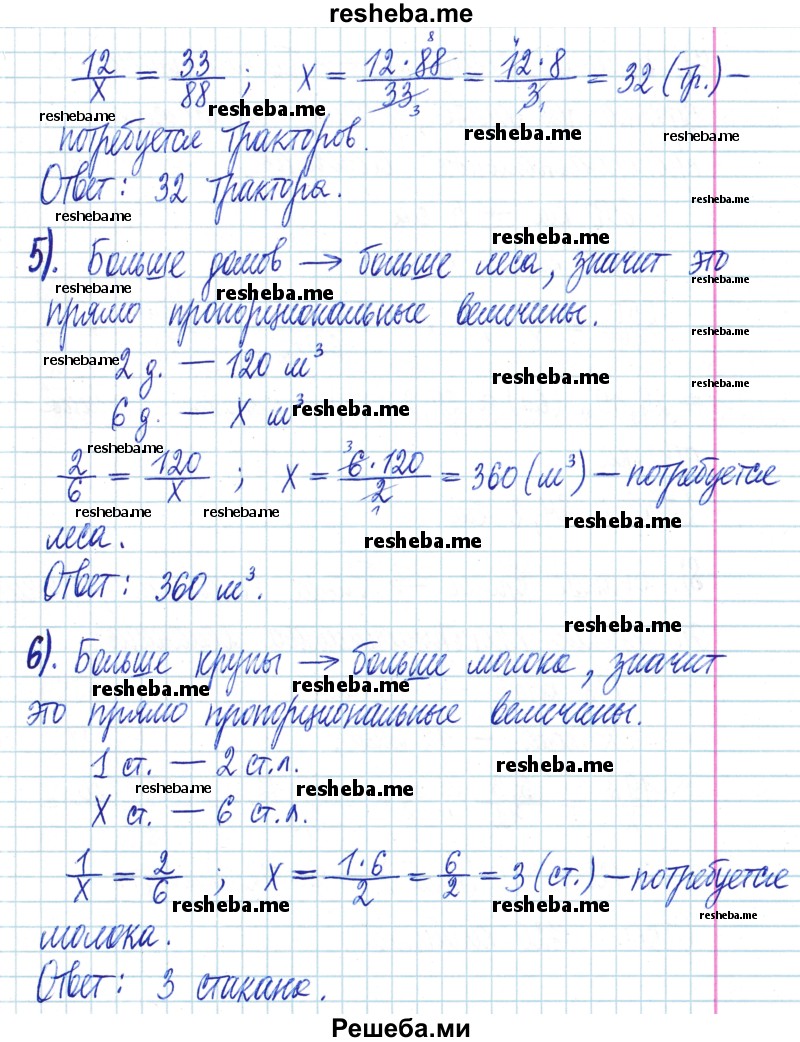 resheba.me
12/x = 33/88 ; x = 12·88/33 = 12·8/3 = 32 (тр.) –
resheba.me resheba.me
потребуется тракторов. resheba.me resheba.me
Ответ: 32 трактора.
resheba.me resheba.me
5). Больше домов → больше леса, значит это
resheba.me
resheba.me resheba.me resheba.me
прямо пропорциональные величины.
resheba.me
resheba.me
2 д. — 120 м³
resheba.me
6 д. — х м³
resheba.me
resheba.me
2/6 = 120/х ; х = 6·120/2 = 360 (м³) – потребуется
resheba.me resheba.me resheba.me
леса. resheba.me
Ответ: 360 м³.
resheba.me
6). Больше крупы → больше молока, значит
resheba.me resheba.me
это прямо пропорциональные величины.
1 ст. — 2 ст.л.
resheba.me
resheba.me resheba.me
х ст. — 6 ст.л.
1/х = 2/6 ; х = 1·6/2 = 6/2 = 3 (ст.) – потребуется
resheba.me resheba.me resheba.me
молока.
Ответ: 3 стакана.
Решеба.ми